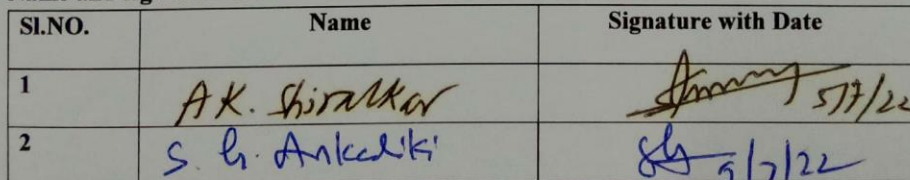 Sl.NO. Name Signature with Date
1 A K. Shiralkar 5/7/22
2 S. G. Ankaliki 5/7/22